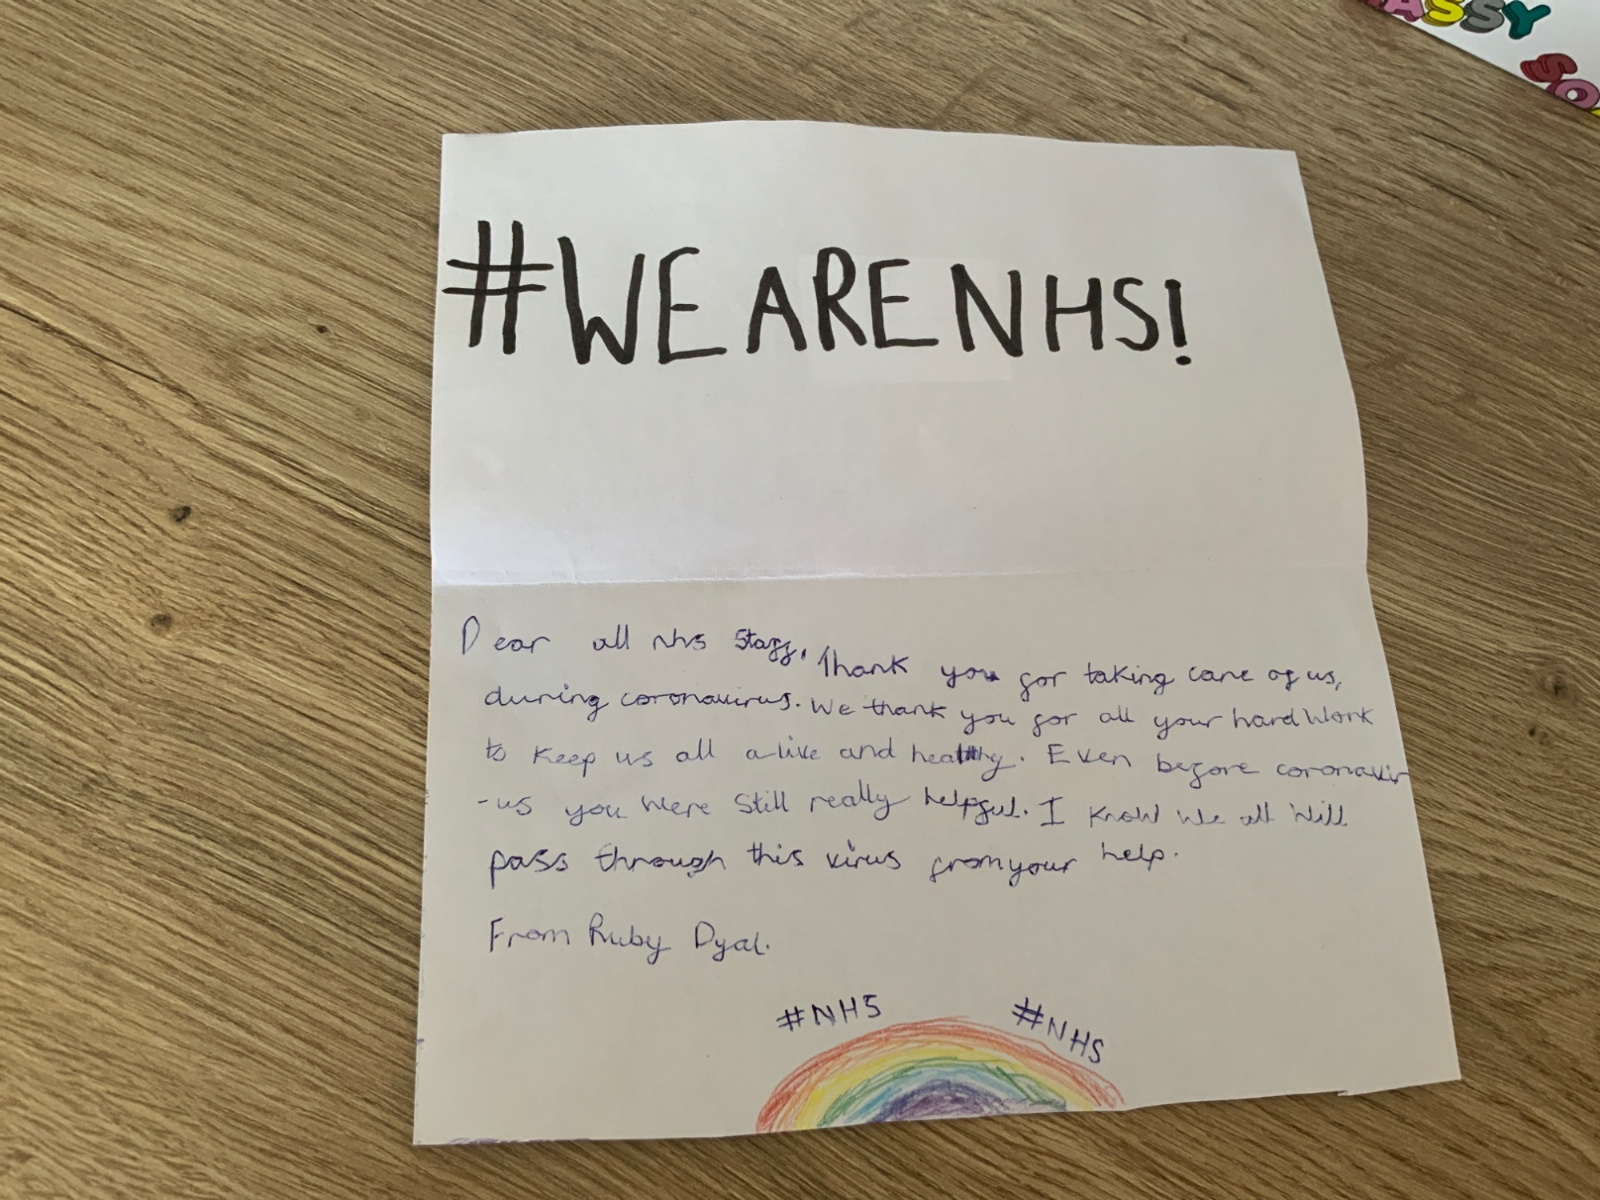 ASSY
SO
#WE ARE NHS!
Dear all nhs Staff, Thank you for taking care of us,
during coronavirus. We thank you for all your hard work
to keep us all alive and healthy. Even before coronavir
-us you were still really helpful. I know we all will
pass through this virus from your help.
From Ruby Dyal.
#NHS #NHS